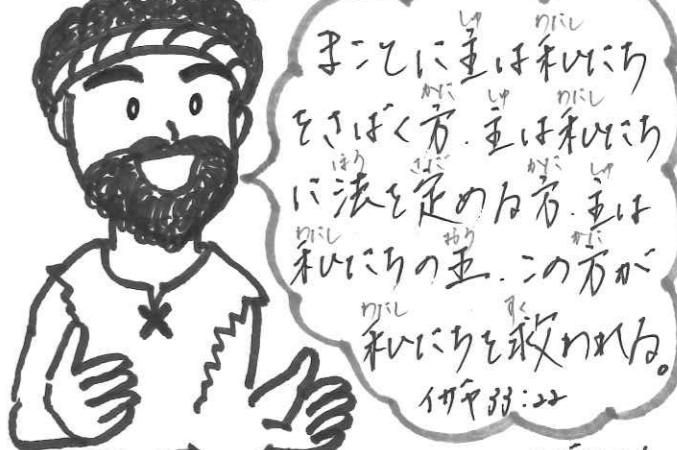 まことに主は私たち
をさばく方.主は私たち
に法を定める方.主は
私たちの王.この方が
私たちを救われる。
イザヤ33:22